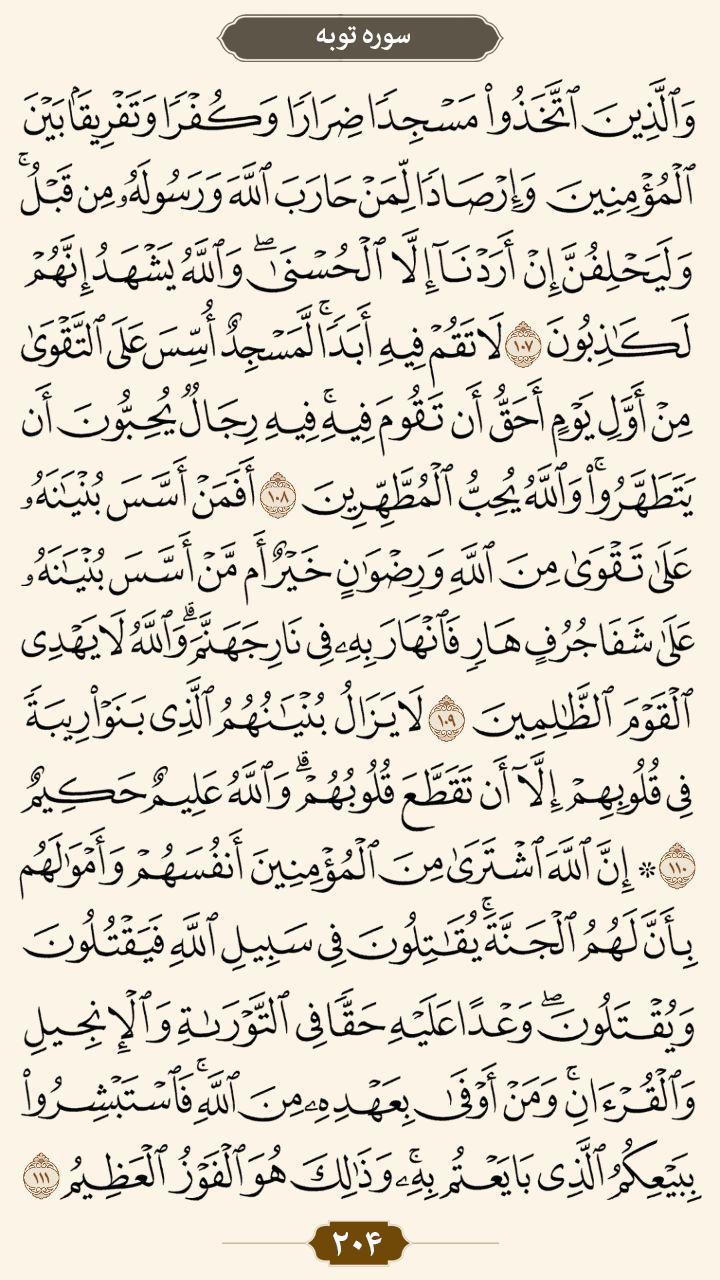 سوره توبه
وَٱلَّذِينَ ٱتَّخَذُوا۟ مَسْجِدًا ضِرَارًا وَكُفْرًا وَتَفْرِيقًۢا بَيْنَ
ٱلْمُؤْمِنِينَ وَإِرْصَادًا لِّمَنْ حَارَبَ ٱللَّهَ وَرَسُولَهُۥ مِن قَبْلُ ۚ
وَلَيَحْلِفُنَّ إِنْ أَرَدْنَآ إِلَّا ٱلْحُسْنَىٰ ۖ وَٱللَّهُ يَشْهَدُ إِنَّهُمْ
لَكَـٰذِبُونَ ١٠٧ لَا تَقُمْ فِيهِ أَبَدًا ۚ لَّمَسْجِدٌ أُسِّسَ عَلَى ٱلتَّقْوَىٰ
مِنْ أَوَّلِ يَوْمٍ أَحَقُّ أَن تَقُومَ فِيهِ ۚ فِيهِ رِجَالٌ يُحِبُّونَ أَن
يَتَطَهَّرُوا۟ ۚ وَٱللَّهُ يُحِبُّ ٱلْمُطَّهِّرِينَ ١٠٨ أَفَمَنْ أَسَّسَ بُنْيَـٰنَهُۥ
عَلَىٰ تَقْوَىٰ مِنَ ٱللَّهِ وَرِضْوَٰنٍ خَيْرٌ أَم مَّنْ أَسَّسَ بُنْيَـٰنَهُۥ
عَلَىٰ شَفَا جُرُفٍ هَارٍ فَٱنْهَارَ بِهِۦ فِى نَارِ جَهَنَّمَ ۗ وَٱللَّهُ لَا يَهْدِى
ٱلْقَوْمَ ٱلظَّـٰلِمِينَ ١٠٩ لَا يَزَالُ بُنْيَـٰنُهُمُ ٱلَّذِى بَنَوْا۟ رِيبَةً
فِى قُلُوبِهِمْ إِلَّآ أَن تَقَطَّعَ قُلُوبُهُمْ ۗ وَٱللَّهُ عَلِيمٌ حَكِيمٌ
١١٠ * إِنَّ ٱللَّهَ ٱشْتَرَىٰ مِنَ ٱلْمُؤْمِنِينَ أَنفُسَهُمْ وَأَمْوَٰلَهُم
بِأَنَّ لَهُمُ ٱلْجَنَّةَ ۚ يُقَـٰتِلُونَ فِى سَبِيلِ ٱللَّهِ فَيَقْتُلُونَ
وَيُقْتَلُونَ ۖ وَعْدًا عَلَيْهِ حَقًّا فِى ٱلتَّوْرَىٰةِ وَٱلْإِنجِيلِ
وَٱلْقُرْءَانِ ۚ وَمَنْ أَوْفَىٰ بِعَهْدِهِۦ مِنَ ٱللَّهِ ۚ فَٱسْتَبْشِرُوا۟
بِبَيْعِكُمُ ٱلَّذِى بَايَعْتُم بِهِۦ ۚ وَذَٰلِكَ هُوَ ٱلْفَوْزُ ٱلْعَظِيمُ ١١١
٢٠۴